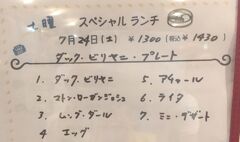 土曜 スペシャルランチ
7月24日(土) ¥1300(税込¥1430)
ダック・ビリヤニ・プレート
1. ダック・ビリヤニ
2. マトン・ローガンジョシュ
3. ムング・ダール
4 エッグ
5. アチャール
6. ライタ
7. ミニ・デザート